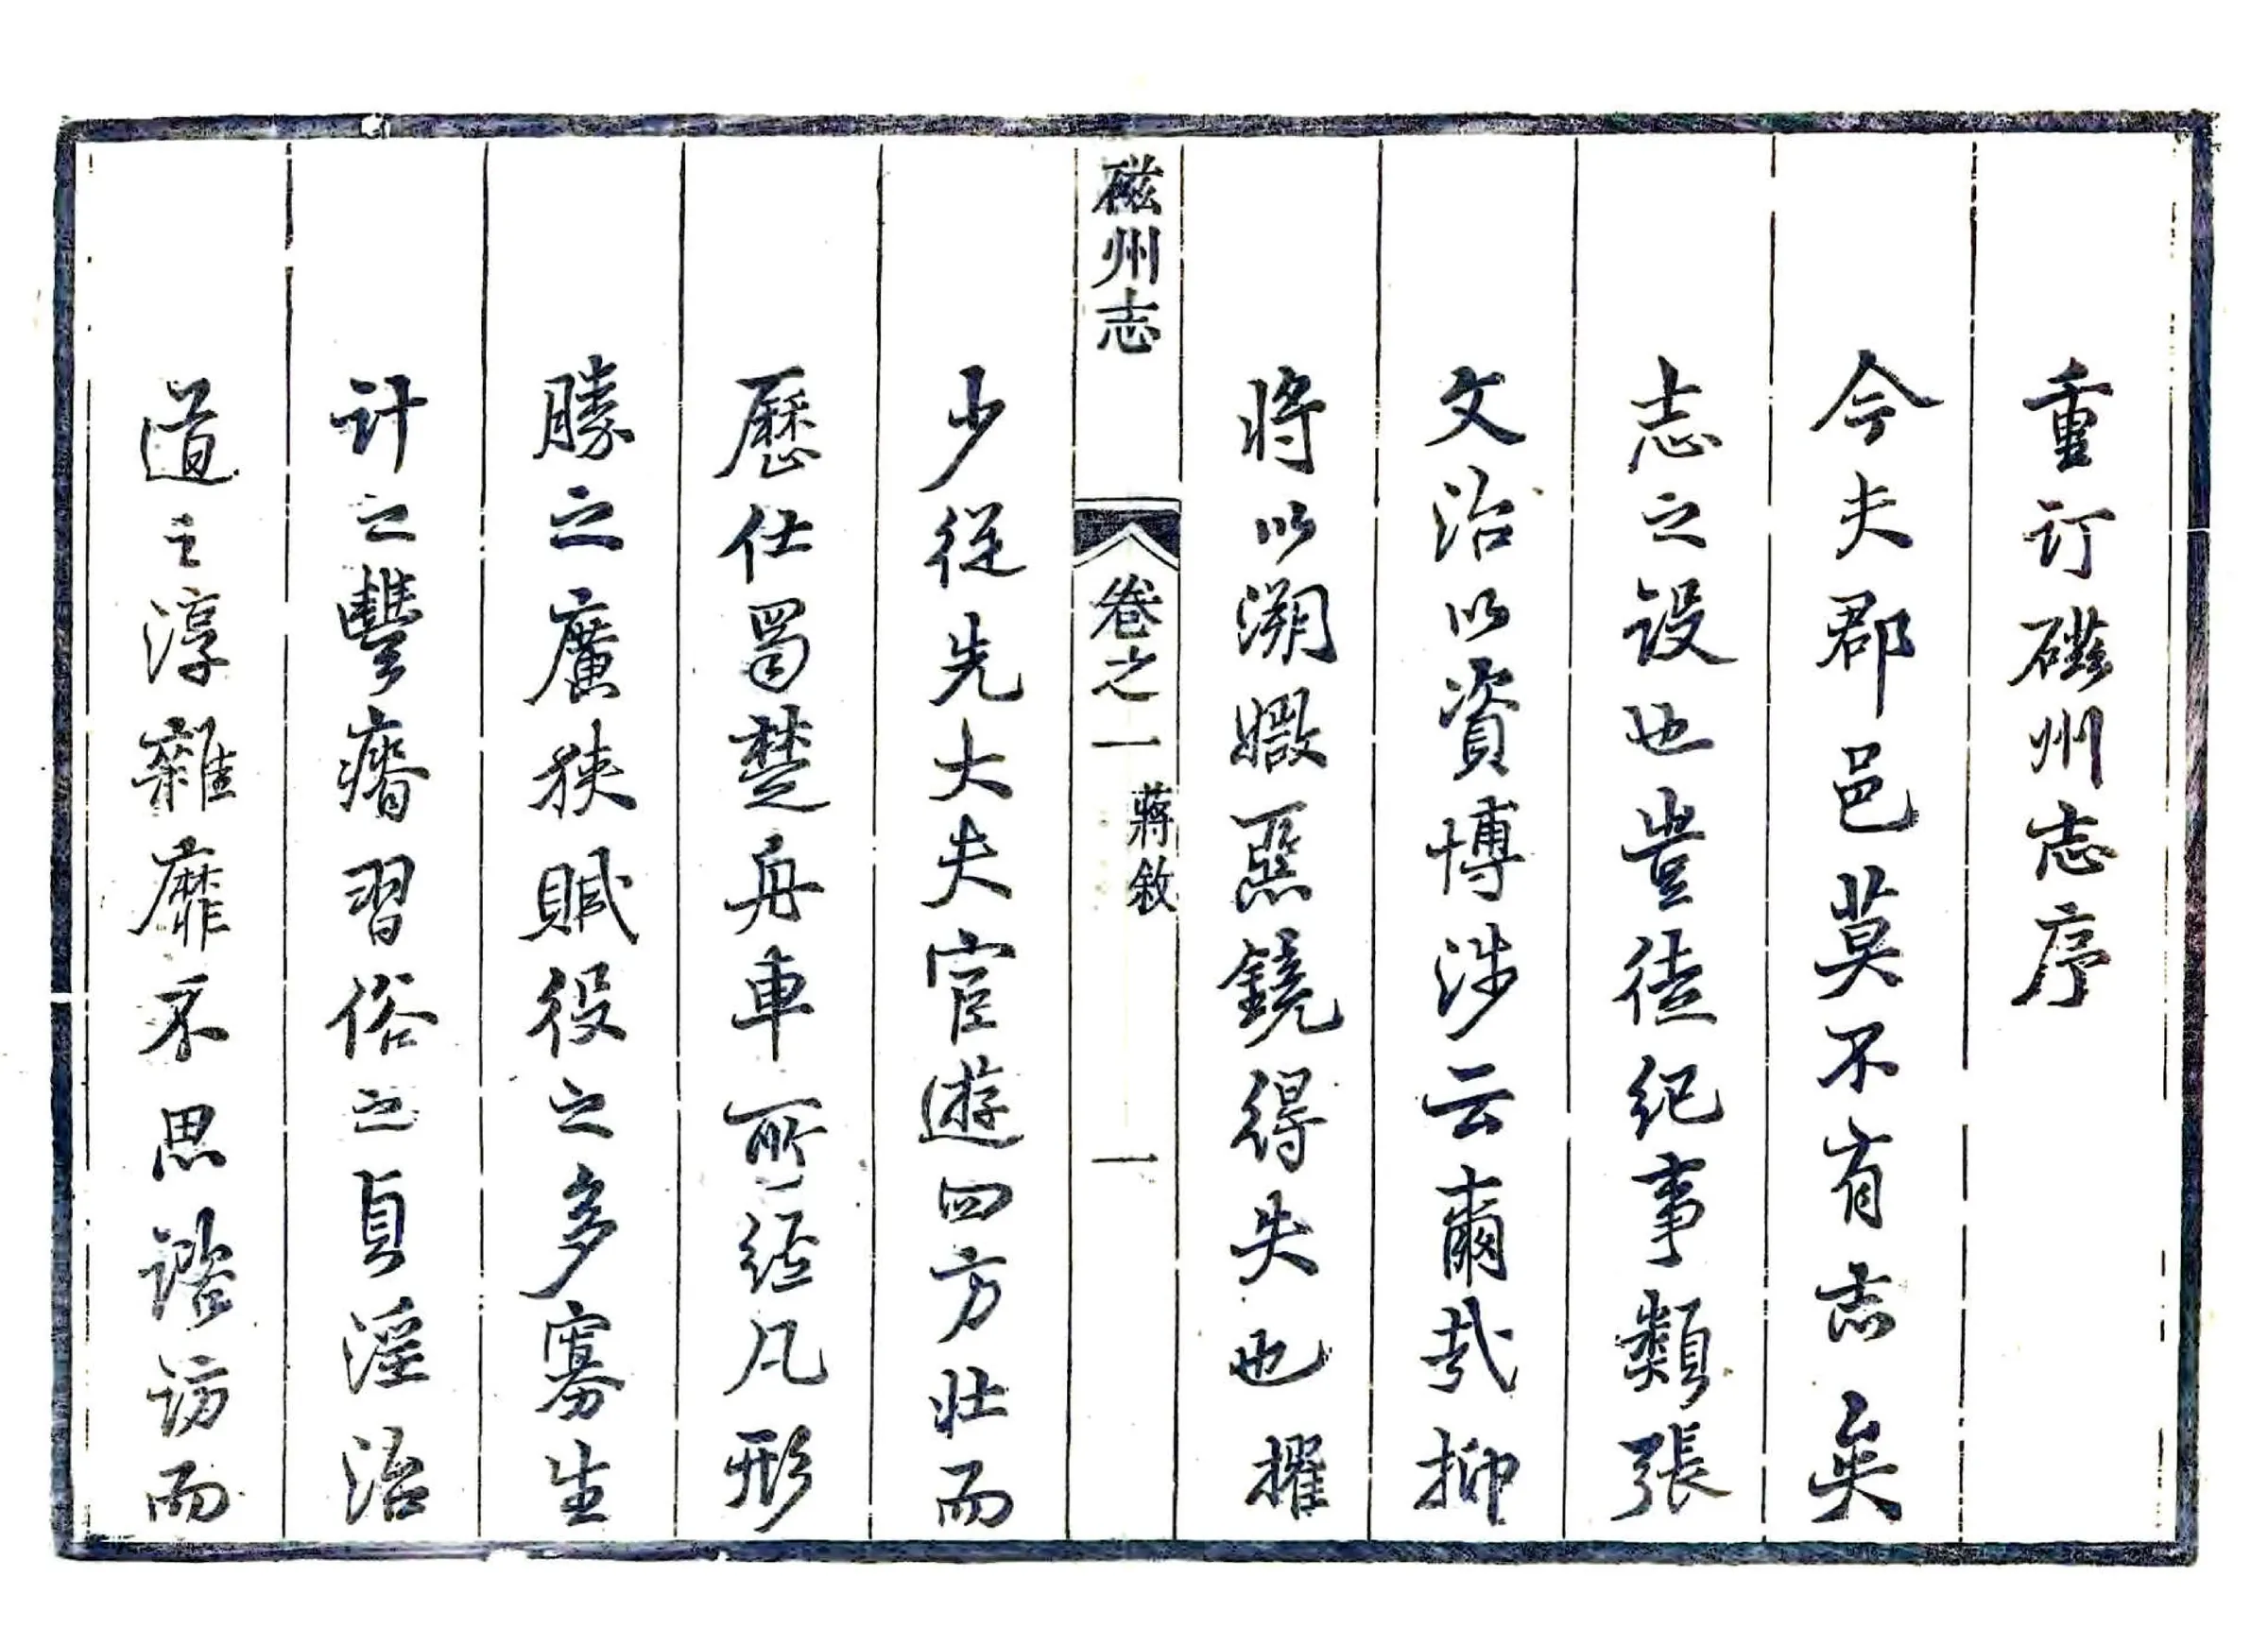 重订磁州志序
今夫郡邑莫不有志矣
志之设也豈徒纪事類張
文治以資博涉云爾哉抑
将以溯媺惡鏡得失也擢
磁州志 卷之一 蔣敘 一
少従先大夫宦遊四方壮而
歷仕蜀楚舟車所經凡形
勝之廣狭賦役之多寡生
计之豐瘠習俗之貞淫治
道之淳雜靡不思諮访而